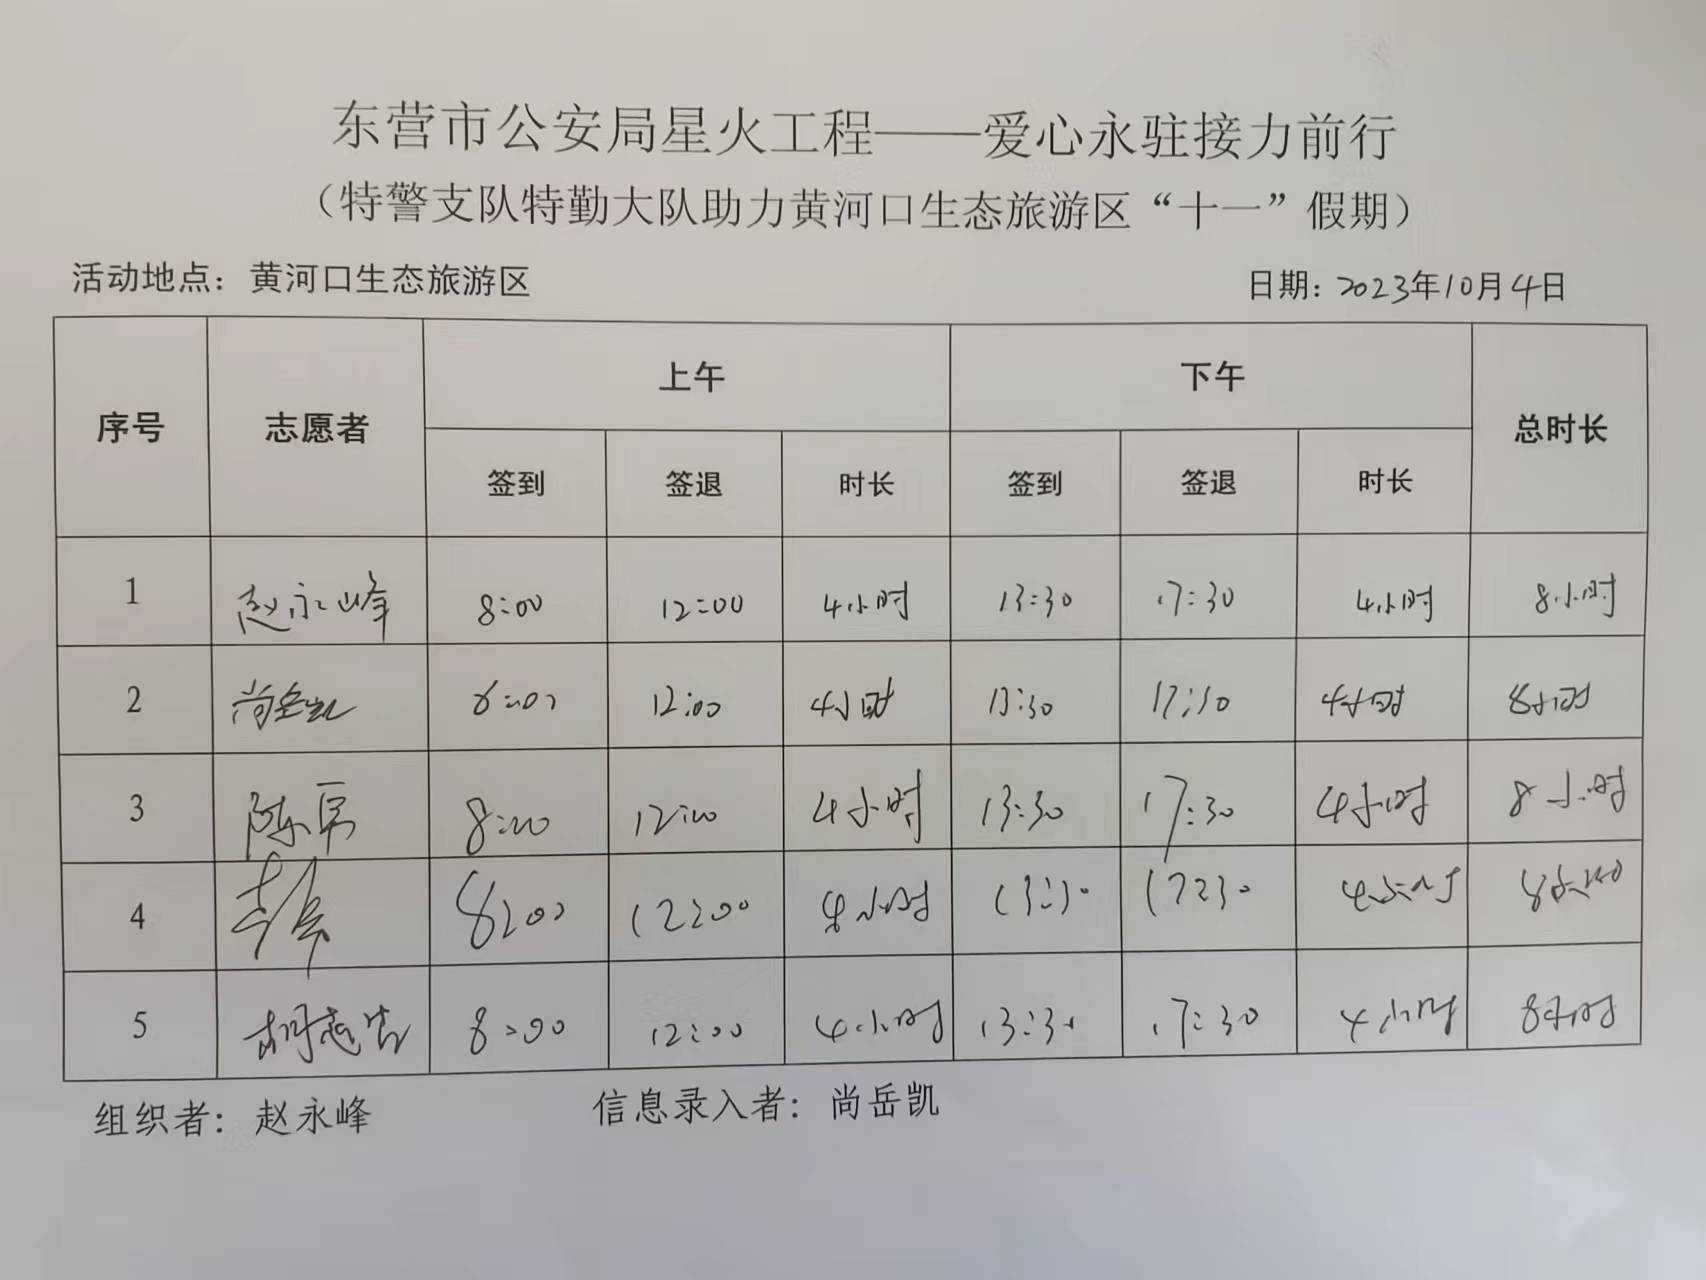 东营市公安局星火工程——爱心永驻接力前行
（特警支队特勤大队助力黄河口生态旅游区“十一”假期）
活动地点：黄河口生态旅游区 日期：2023年10月4日
序号 志愿者 上午 下午 总时长
签到 签退 时长 签到 签退 时长
1 赵永峰 8:00 12:00 4小时 13:30 17:30 4小时 8小时
2 尚岳凯 8:00 12:00 4小时 13:30 17:30 4小时 8小时
3 陈军 8:00 12:00 4小时 13:30 17:30 4小时 8小时
4 8:00 12:00 4小时 13:30 17:30 4小时 8小时
5 胡志浩 8:00 12:00 4小时 13:30 17:30 4小时 8小时
组织者：赵永峰 信息录入者：尚岳凯